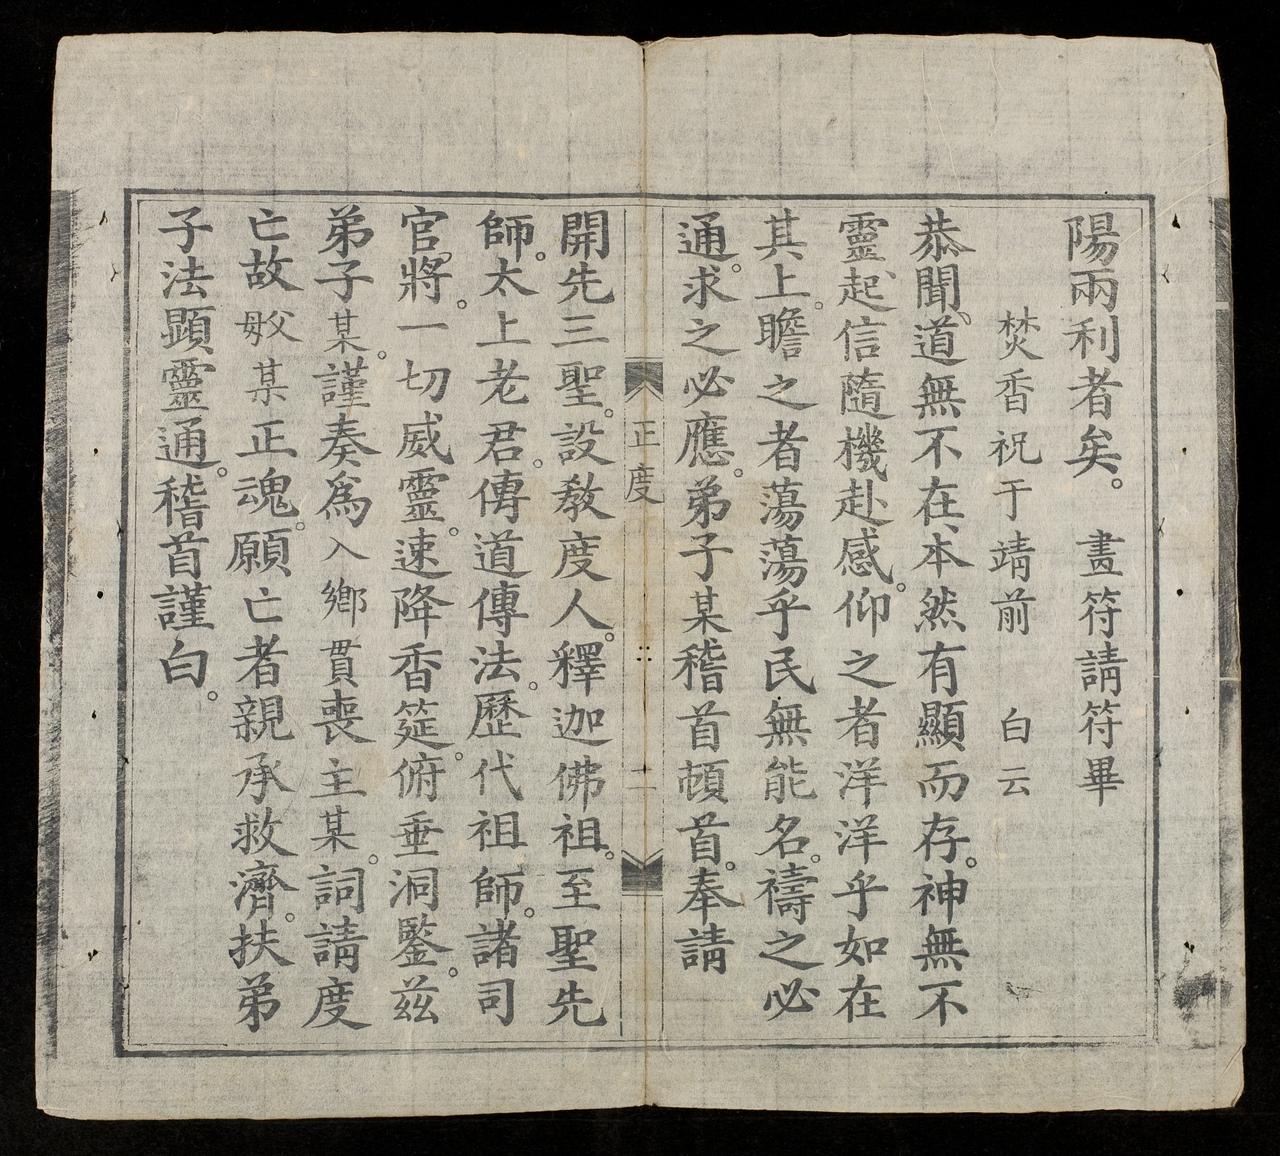 陽兩利者矣。 畫符請符畢
焚香祝于靖前 白云
恭聞、道無不在、本然有顯而存。神無不
靈、起信隨機赴感。仰之者洋洋乎如在
其上。瞻之者蕩蕩乎民無能名。禱之必
通。求之必應。弟子某稽首頓首。奉請
正度 二
開先三聖。設教度人。釋迦佛祖。至聖先
師。太上老君。傳道傳法。歷代祖師。諸司
官。將。一切威靈。速降香筵。俯垂洞鑒。茲
弟子某。謹奏爲入鄉貫喪主某。詞請度
亡故父母某正魂。願亡者親承救濟。扶弟
子法顕靈通。稽首謹白。